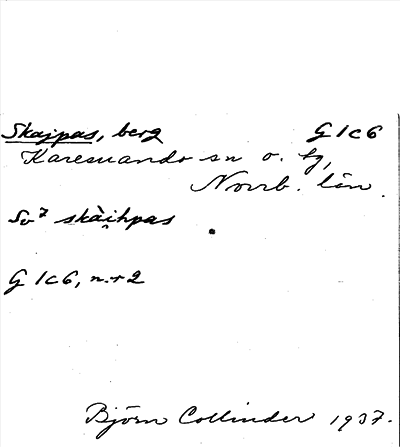 Skajpas, berg G 1c6
Karesuando sn o. tg,
Norrb. län.
So⁷ skài̯hpas
G 1c6, n:r 2
Björn Collinder 1937.